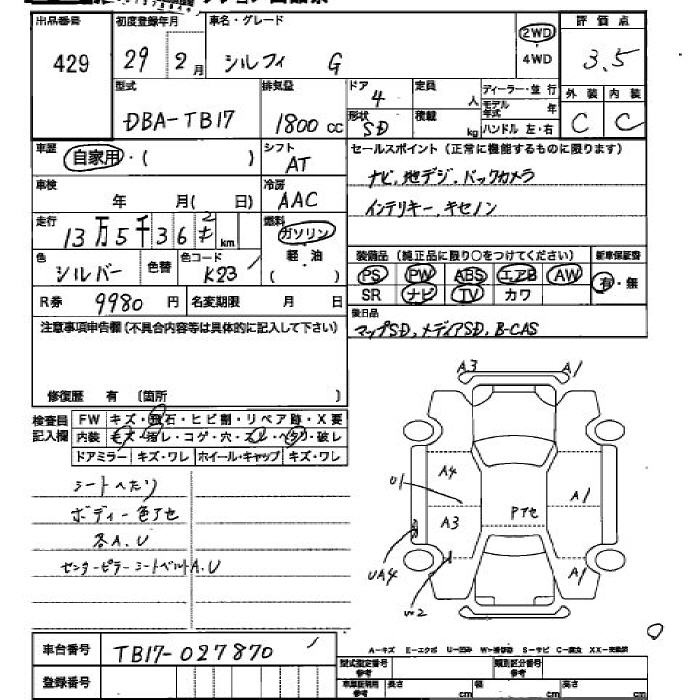 出品番号 初度登録年月 車名・グレード 評価点
429 29年 2月 シルフィ G 2WD 3.5
4WD
型式 排気量 ドア 定員 ディーラー・並行 外装 内装
DBA-TB17 1800cc 4 人 モデル年式 年 C C
形状 SD 積載 kg ハンドル 左・右
車歴 自家用・( ) シフト AT セールスポイント(正常に機能するものに限ります)
車検 年 月( 日) 冷房 AAC ナビ、地デジ、バックカメラ
インテリキー、キセノン
走行 13万5千36 km 燃料 ガソリン
軽・油
( )
色 シルバー 色替 色コード K23 装備品(純正品に限り○をつけてください) 新車保証書
PS PW ABS エアB AW 有・無
SR ナビ TV カワ
R券 9980円 名変期限 月 日 後日品
マップSD、メディアSD、B-CAS
注意事項申告欄(不具合内容等は具体的に記入して下さい)
修復歴 有 〔箇所 〕
検査員記入欄 FW キズ・飛石・ヒビ割・リペア跡・X要
内装 キズ・指レ・コゲ・穴・スレ・ヘタリ・破レ
ドアミラー キズ・ワレ ホイール・キャップ キズ・ワレ
シートへたり
ボディー色アセ
各A.U
センターピラーシートベルトA.U
A3 A1
A4
U1
A3 Pアセ A1
UA4 A1
W2
車台番号 TB17-027870
A-キズ E-エクボ U-凹み W-補修跡 S-サビ C-腐食 XX-交換済
登録番号 型式指定番号 参考 類別区分番号 参考
車庫証明用 参考 長さ cm 幅 cm 高さ cm